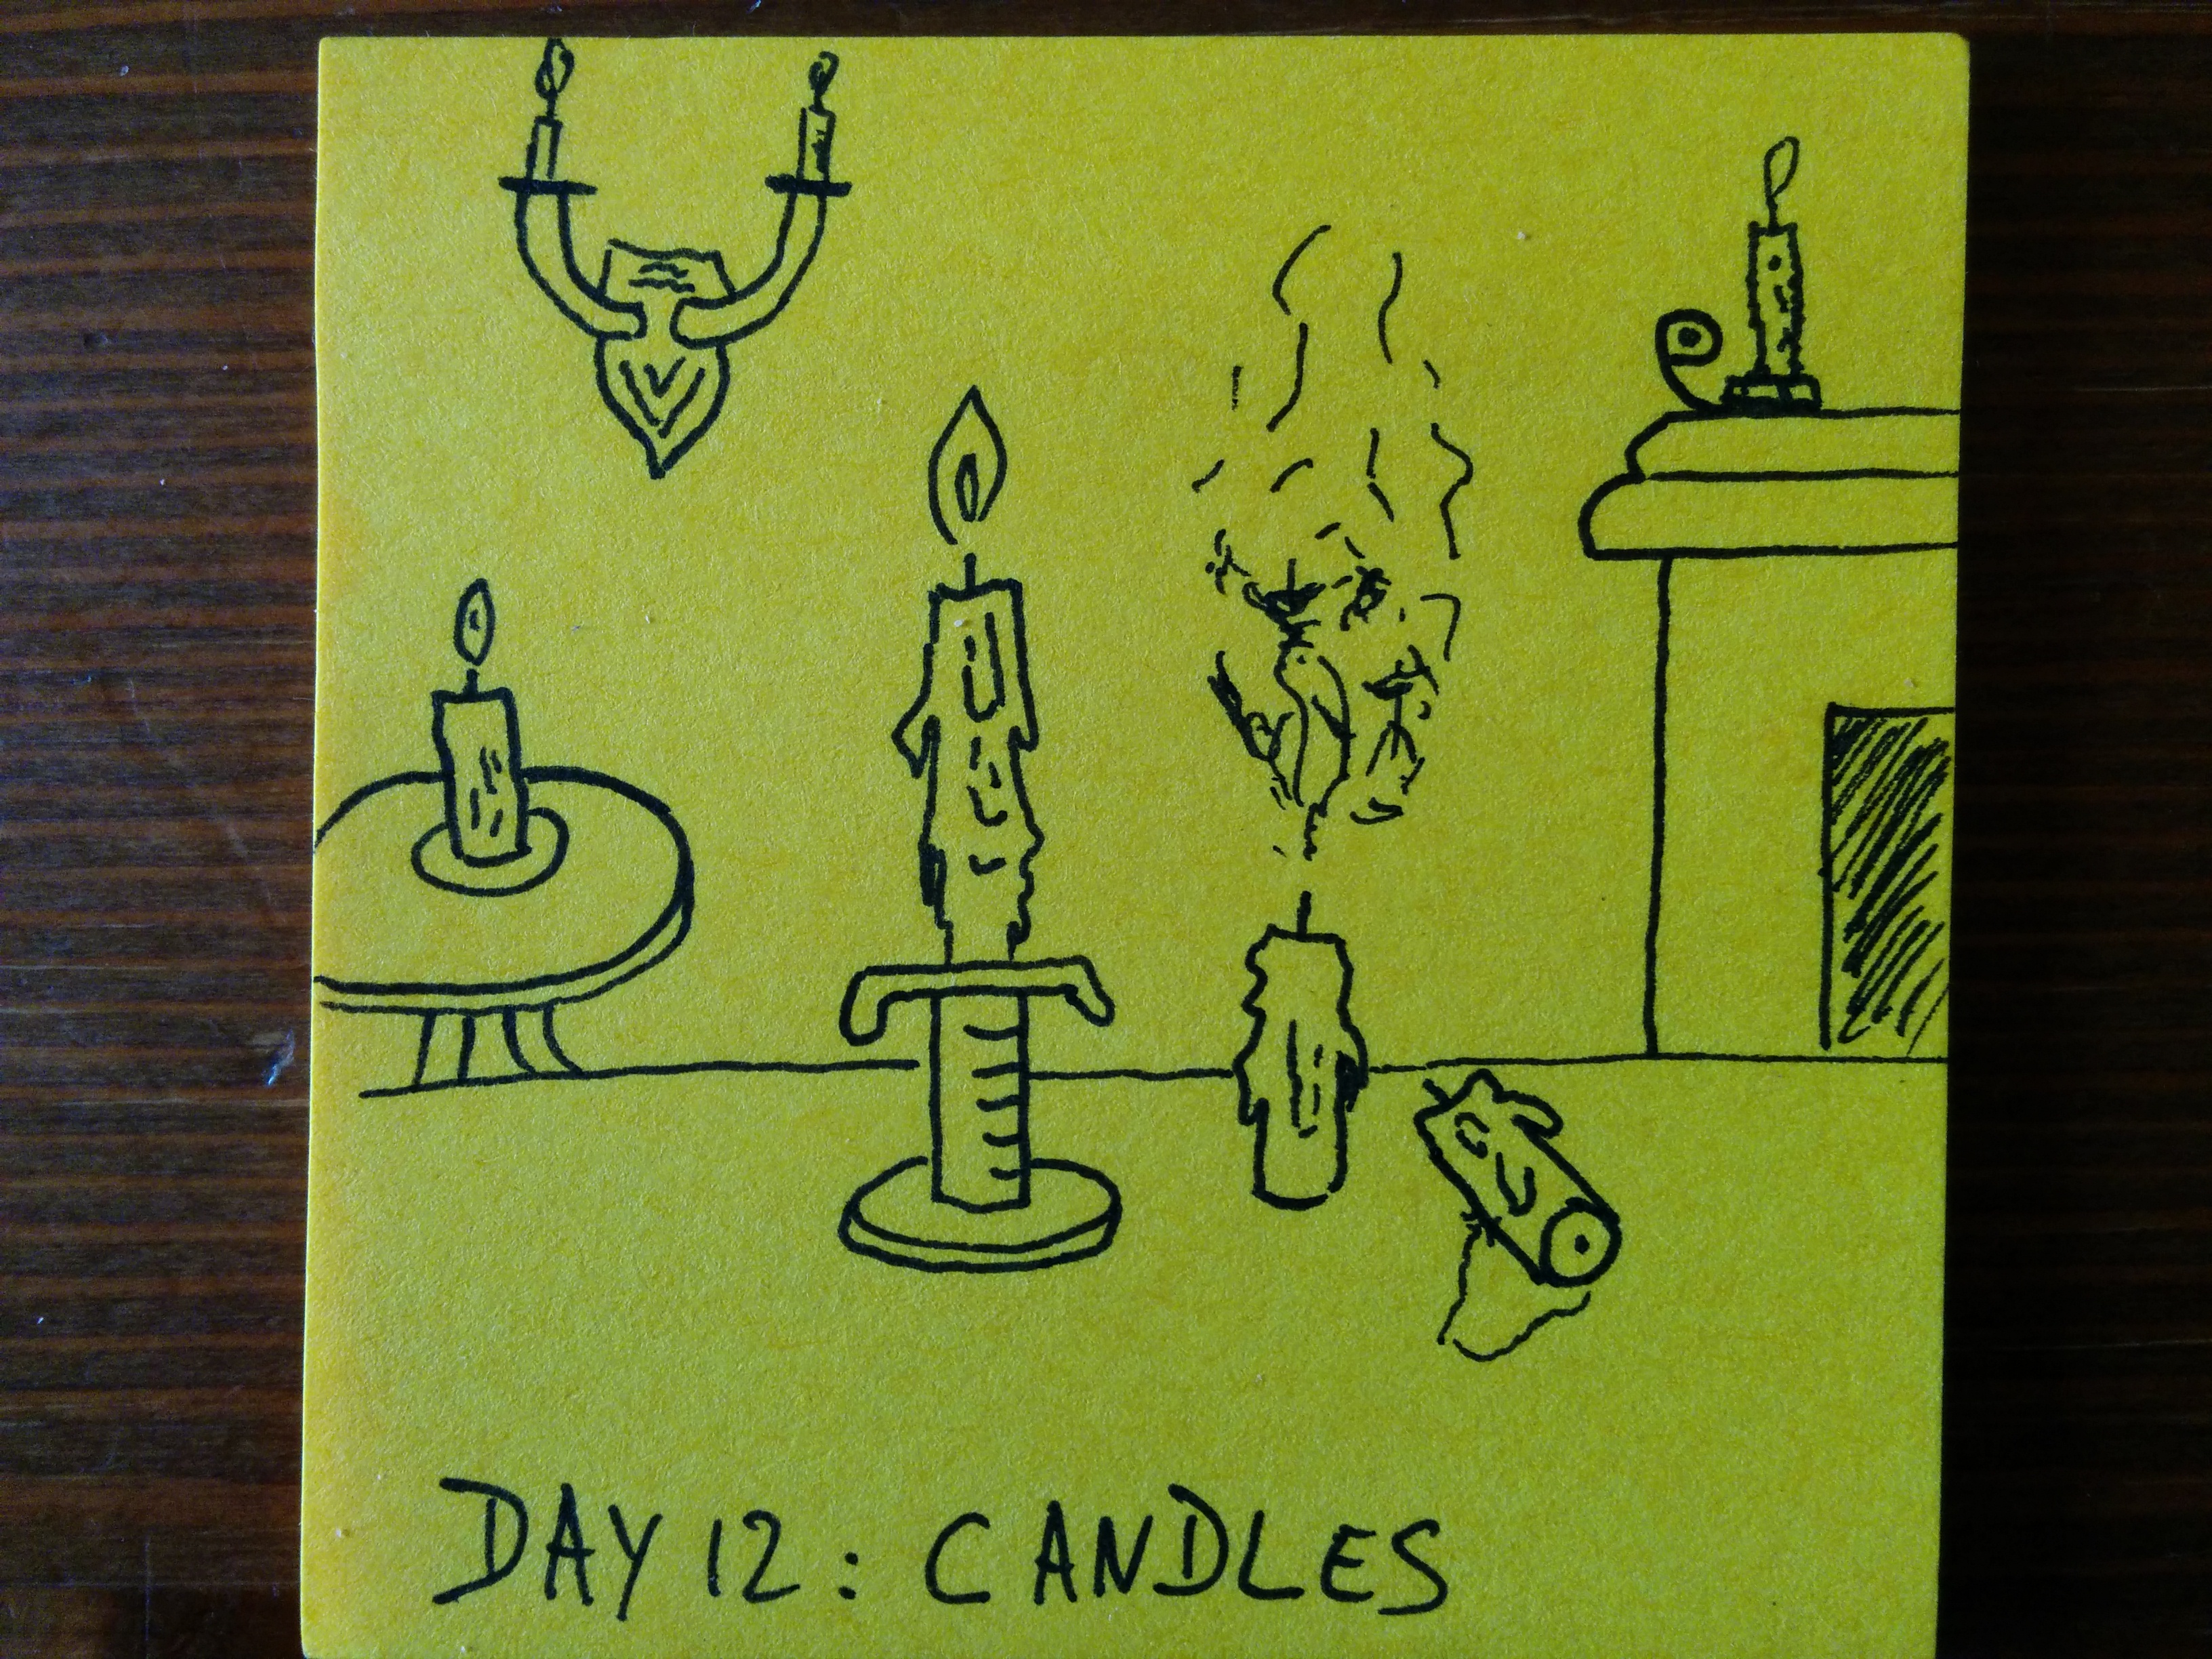 DAY 12: CANDLES